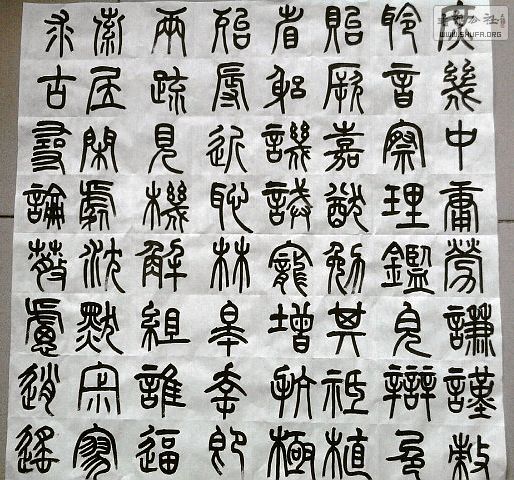 庶幾中庸勞謙謹敕
聆音察理鑑皃辯色
貽厥嘉猷勉其祗植
省躬譏誡寵增抗極
殆辱近恥林皋幸即
兩疏見機解組誰逼
索居閑處沈默寂寥
求古尋論散慮逍遙
WWW.SHUFA.ORG